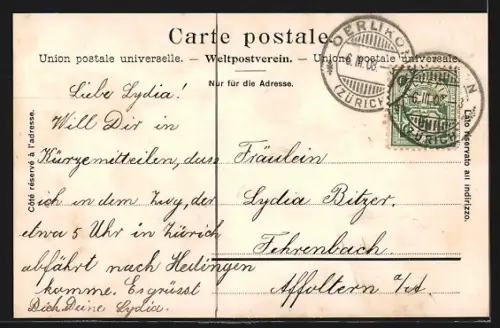 Carte postale.
Union postale universelle. — Weltpostverein. — Unione postale universale.
Nur für die Adresse.
Côté réservé à l'adresse.
Lato riservato all'indirizzo.
OERLIKON
6.III.08.
(ZÜRICH)
6.III.08.
(ZÜRICH)
Liebe Lydia!
Will Dir in
Kürze mitteilen, dass
ich in dem Zug, der
etwa 5 Uhr in Zürich
abfährt nach Hedingen
komme. Es grüsst
Dich Deine Lydia.
Fräulein
Lydia Bitzer.
Fehrenbach
Affoltern a/A.